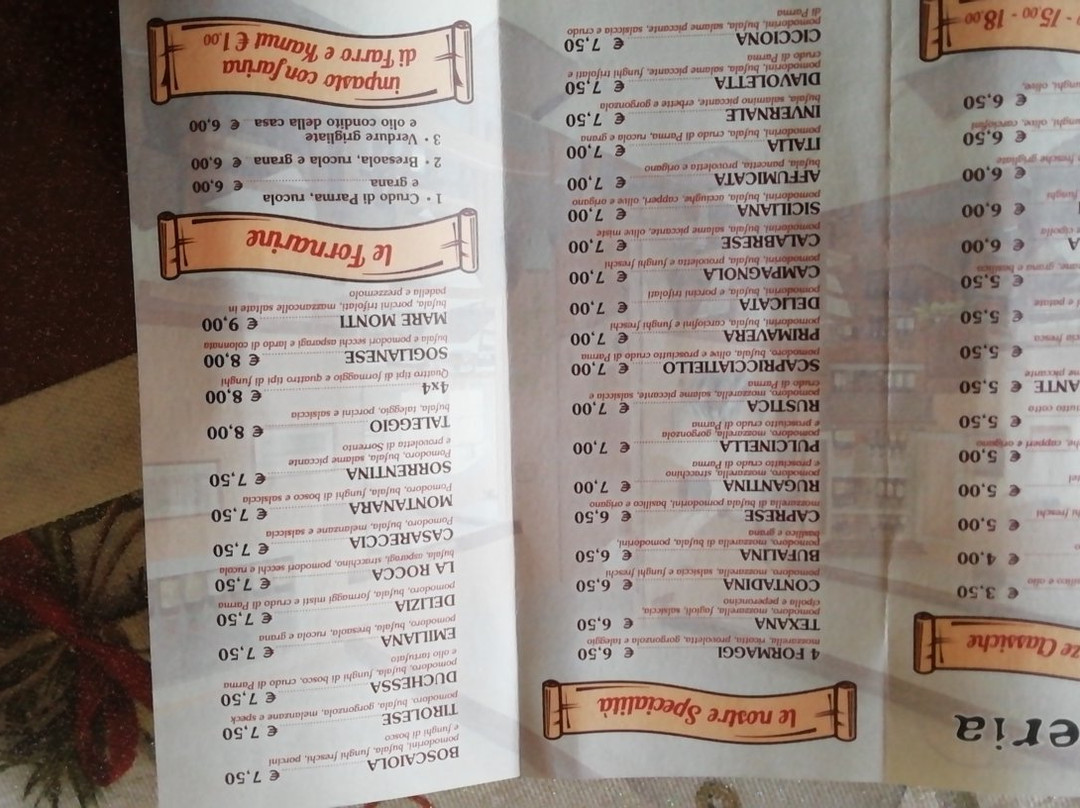 eria
ze Classiche
€ 3,50
€ 4,00
€ 5,00
funghi freschi
€ 5,00
€ 5,00
capperi e origano
€ 5,50
cotto
ANTE € 5,50
piccante
€ 5,50
€ 5,50
e patate
€ 5,50
grana e basilico
A € 6,00
e cipolla
€ 6,00
funghi
€ 6,00
fresche grigliate
€ 6,50
olive, carciofini
€ 6,50
funghi, olive,
- 15,00 - 18,00
le nostre Specialità
4 FORMAGGI € 6,50
mozzarella, ricotta, provoletta, gorgonzola e taleggio
TEXANA € 6,50
pomodoro, mozzarella, fagioli, salsiccia,
cipolla e peperoncino
CONTADINA € 6,50
pomodoro, mozzarella, salsiccia e funghi freschi
BUFALINA € 6,50
pomodoro, mozzarella di bufala, pomodorini,
basilico e grana
CAPRESE € 6,50
mozzarella di bufala pomodorini, basilico e origano
RUGANTINA € 7,00
pomodoro, mozzarella, stracchino
e prosciutto crudo di Parma
PULCINELLA € 7,00
pomodoro, mozzarella, gorgonzola
e prosciutto crudo di Parma
RUSTICA € 7,00
pomodoro, mozzarella, salame piccante, salsiccia e
crudo di Parma
SCAPRICCIATIELLO € 7,00
pomodoro, bufala, olive e prosciutto crudo di Parma
PRIMAVERA € 7,00
pomodorini, bufala, carciofini e funghi freschi
DELICATA € 7,00
pomodorini, bufala e porcini trifolati
CAMPAGNOLA € 7,00
pomodorini, bufala, provoletta e funghi freschi
CALABRESE € 7,00
pomodorini, bufala, salame piccante, olive miste
SICILIANA € 7,00
pomodorini, bufala, acciughe, capperi, olive e origano
AFFUMICATA € 7,00
bufala, pancetta, provoletta e origano
ITALIA € 7,00
pomodorini, bufala, crudo di Parma, rucola e grana
INVERNALE € 7,50
bufala, salamino piccante, erbette e gorgonzola
DIAVOLETTA € 7,50
pomodorini, bufala, salame piccante, funghi trifolati e
crudo di Parma
CICCIONA € 7,50
pomodorini, bufala, salame piccante, salsiccia e crudo
di Parma
BOSCAIOLA € 7,50
pomodorini, bufala, funghi freschi, porcini
e funghi di bosco
TIROLESE € 7,50
pomodoro, bufala, gorgonzola, melanzane e speck
DUCHESSA € 7,50
pomodoro, bufala, funghi di bosco, crudo di Parma
e olio tartufato
EMILIANA € 7,50
pomodoro, bufala, bresaola, rucola e grana
DELIZIA € 7,50
pomodoro, bufala, formaggi misti e crudo di Parma
LA ROCCA € 7,50
bufala, asparagi, stracchino, pomodori secchi e rucola
CASARECCIA € 7,50
Pomodoro, bufala, melanzane e salsiccia
MONTANARA € 7,50
Pomodoro, bufala, funghi di bosco e salsiccia
SORRENTINA € 7,50
Pomodoro, bufala, salame piccante
e provoletta di Sorrento
TALEGGIO € 8,00
bufala, taleggio, porcini e salsiccia
4x4 € 8,00
Quattro tipi di formaggio e quattro tipi di funghi
SOGLIANESE € 8,00
bufala e pomodori secchi asparagi e lardo di colonnata
MARE MONTI € 9,00
bufala, porcini trifolati, mazzancolle saltate in
padella e prezzemolo
le Fornarine
1 • Crudo di Parma, rucola
e grana € 6,00
2 • Bresaola, rucola e grana € 6,00
3 • Verdure grigliate
e olio condito della casa € 6,00
impasto con farina
di Farro e Kamut € 1,00